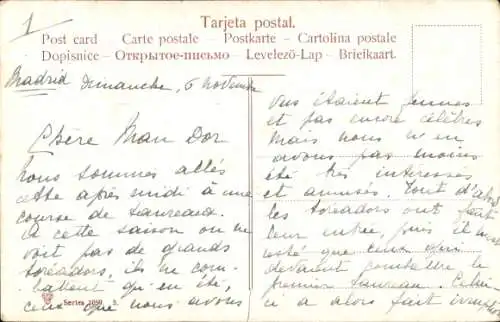 1
Tarjeta postal.
Post card – Carte postale – Postkarte – Cartolina postale
Dopisnice – Открытое-письмо – Levelezö-Lap – Briefkaart.
Madrid Dimanche, 6 Novembre
Chère Man Dor
nous sommes allés
cette après midi à une
course de taureaux.
A cette saison on ne
voit pas de grands
toreadors, ils ne com-
battent qu'en été,
ceux que nous avons
Series 1090
vus étaient jeunes
et pas encore célèbres
mais nous n'en
avons pas moins
été très interessés
et amusés. Tout d'abord
les toreadors ont fait
leur entrée, puis il n'est
resté que ceux qui
devaient combattre le
premier taureau. Celui-
ci a alors fait